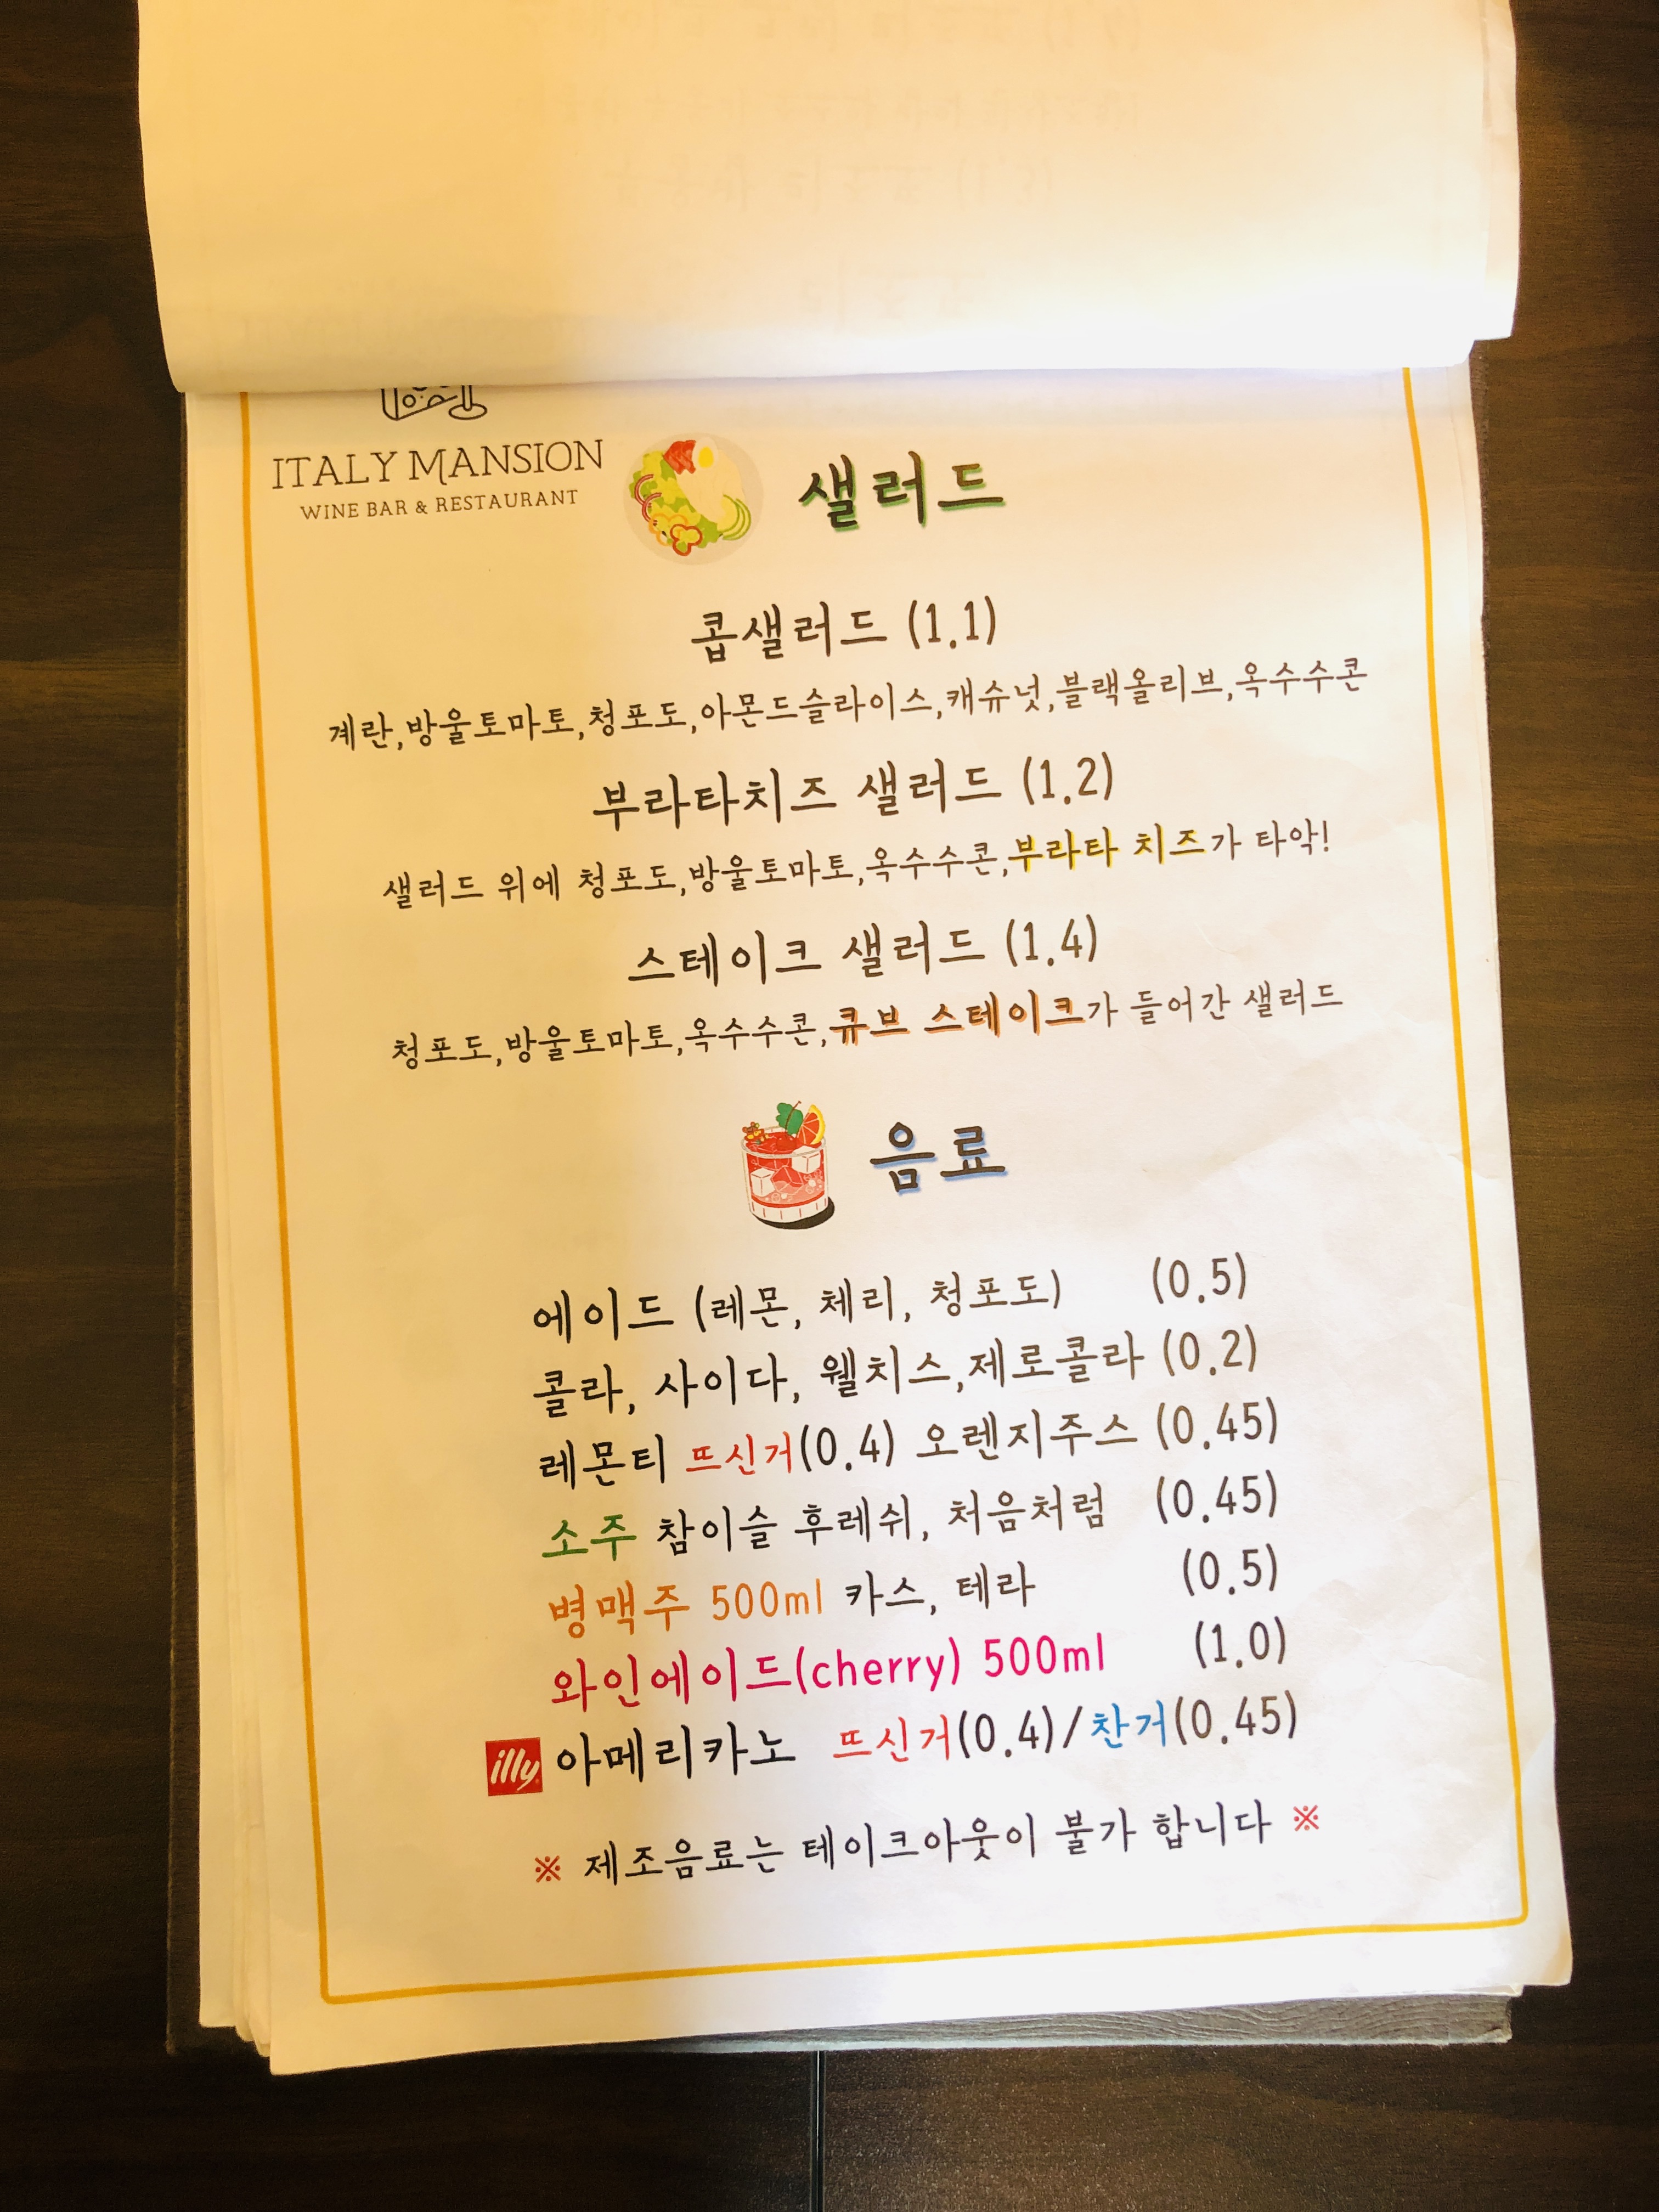 ITALY MANSION
WINE BAR & RESTAURANT
샐러드
콥샐러드 (1.1)
계란,방울토마토,청포도,아몬드슬라이스,캐슈넛,블랙올리브,옥수수콘
부라타치즈 샐러드 (1.2)
샐러드 위에 청포도,방울토마토,옥수수콘,부라타 치즈가 타악!
스테이크 샐러드 (1.4)
청포도,방울토마토,옥수수콘,큐브 스테이크가 들어간 샐러드
음료
에이드 (레몬, 체리, 청포도) (0.5)
콜라, 사이다, 웰치스,제로콜라 (0.2)
레몬티 뜨신거(0.4) 오렌지주스 (0.45)
소주 참이슬 후레쉬, 처음처럼 (0.45)
병맥주 500ml 카스, 테라 (0.5)
와인에이드(cherry) 500ml (1.0)
illy 아메리카노 뜨신거(0.4)/찬거(0.45)
※ 제조음료는 테이크아웃이 불가 합니다 ※